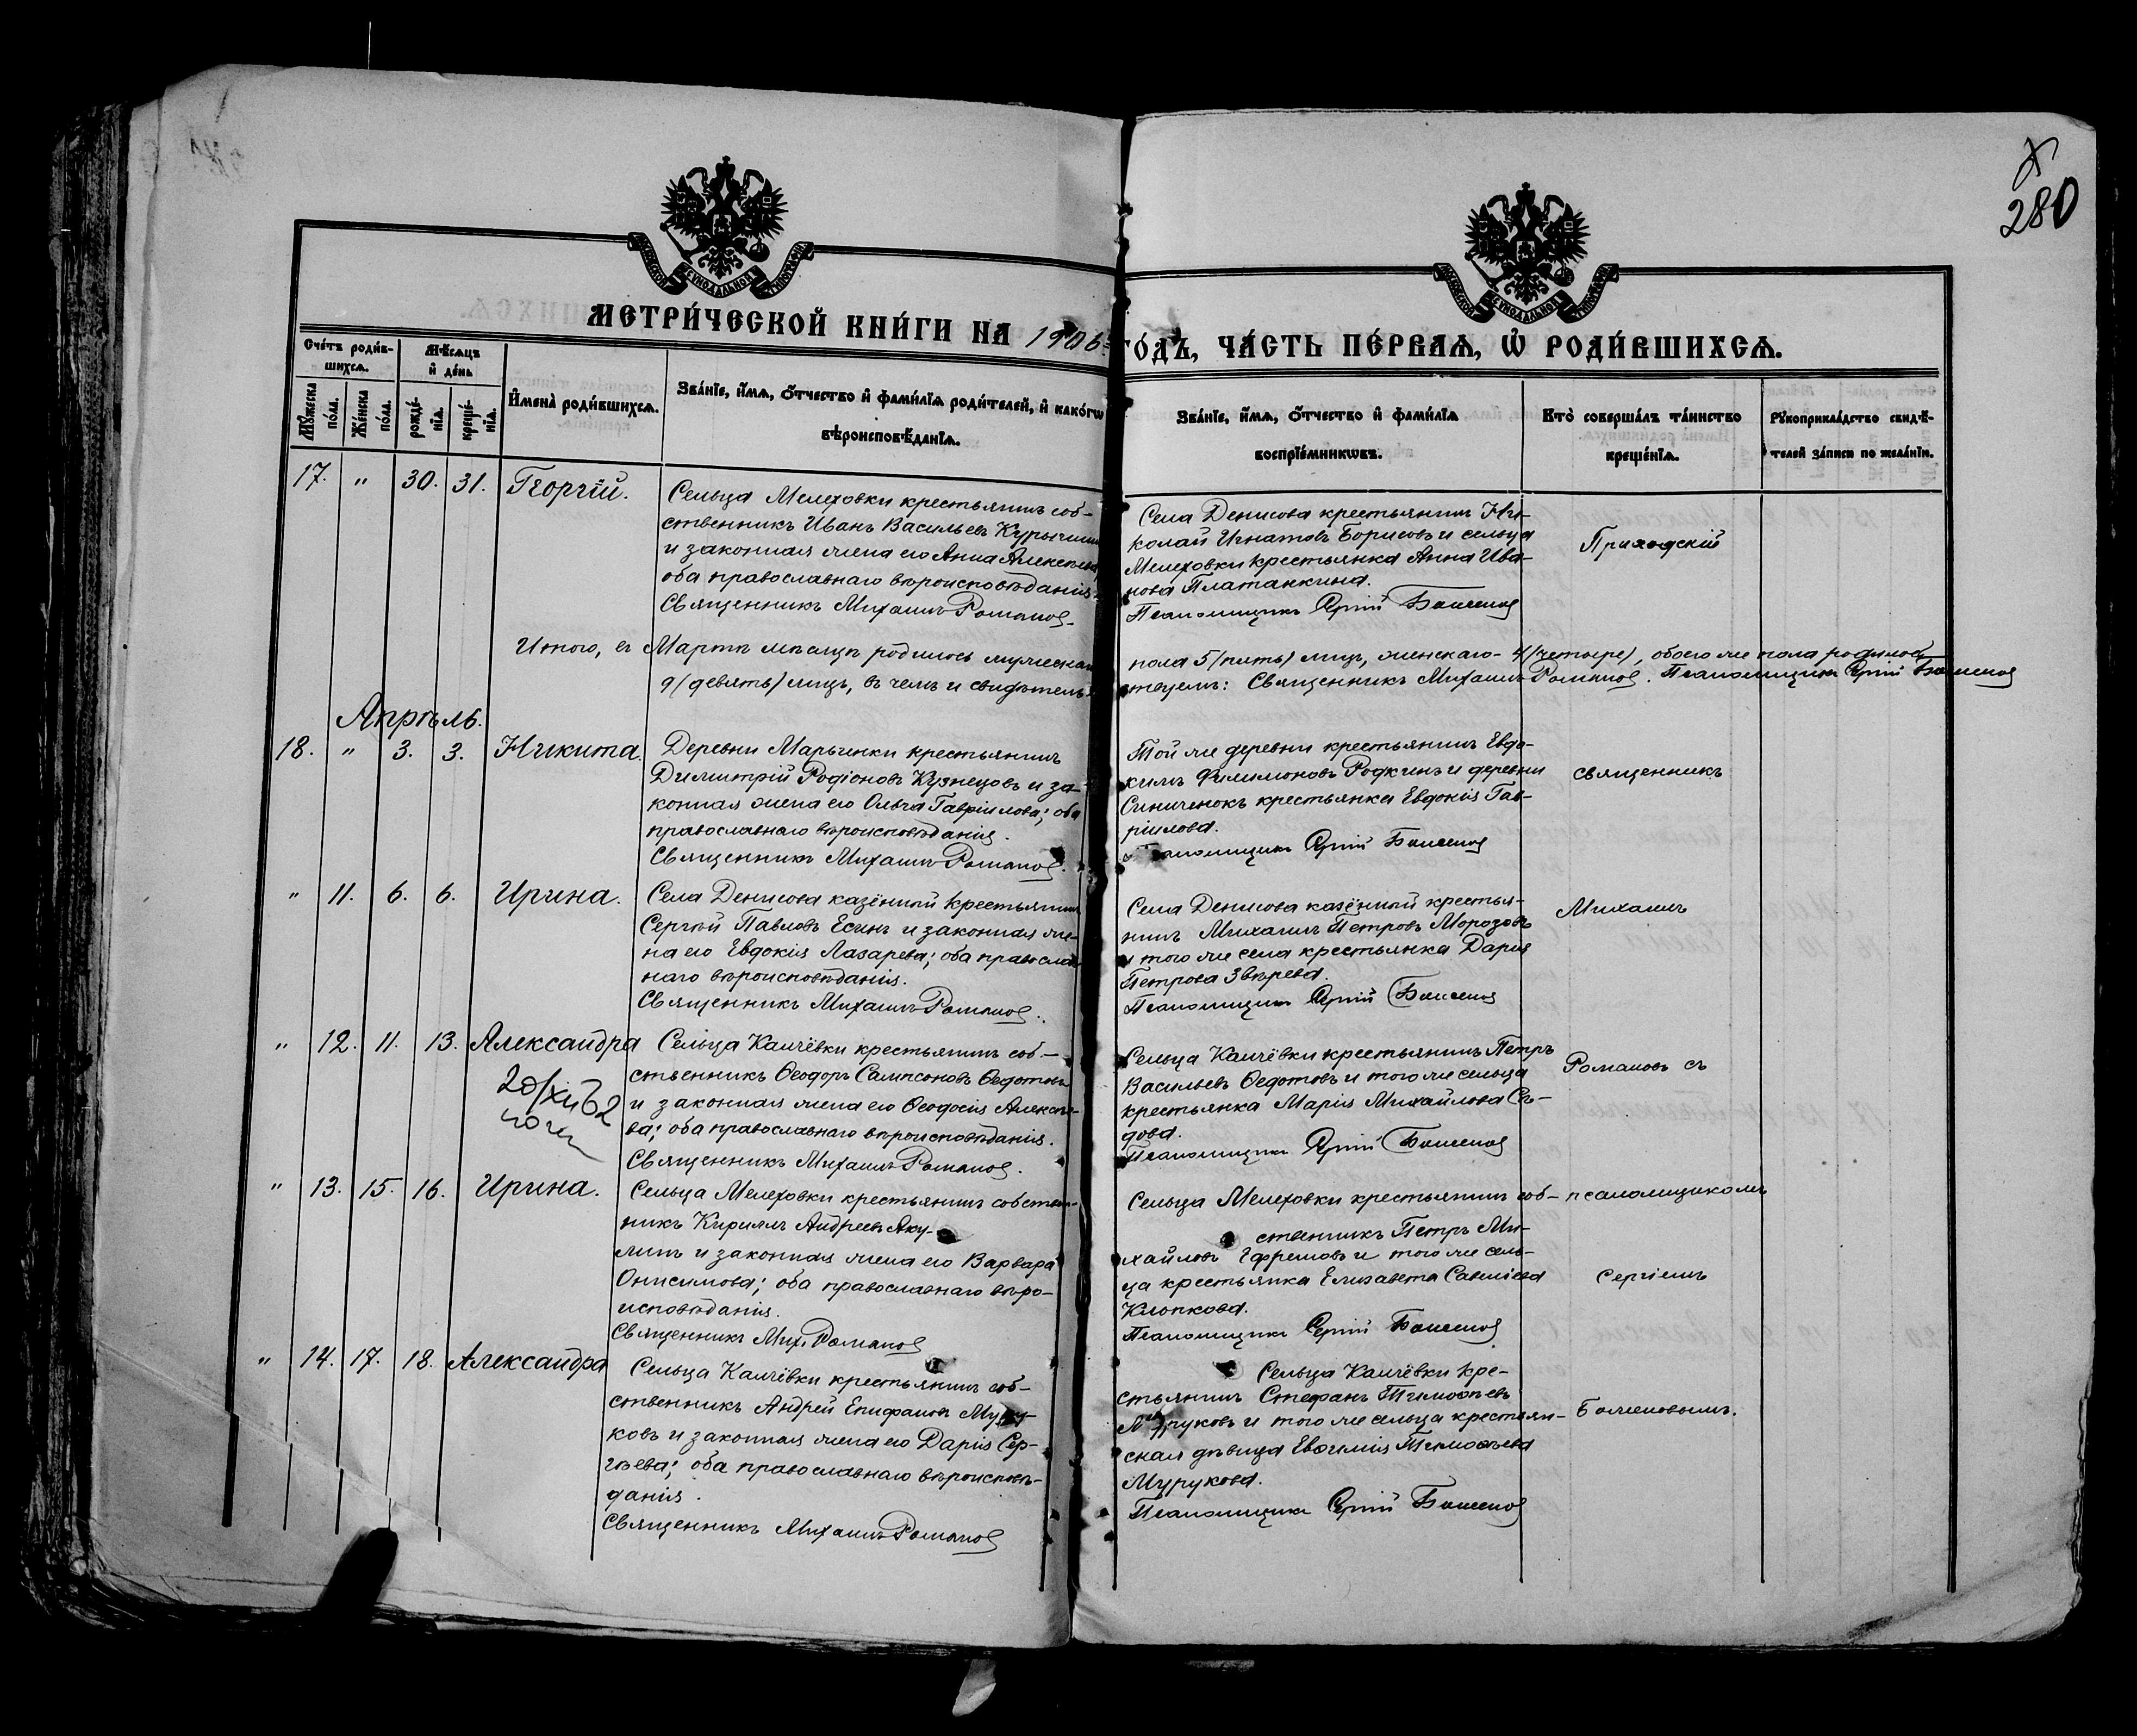 280
МОСКОВСКОЙ СѴНОДАЛЬНОЙ ТИПОГРАФІИ
МОСКОВСКОЙ СѴНОДАЛЬНОЙ ТИПОГРАФІИ
МЕТРИ́ЧЕСКОЙ КНИ́ГИ НА 1906 ГО́ДЪ, ЧА́СТЬ ПЕ́РВАѦ, Ѡ҆ РОДИ́ВШИХСѦ.
Сче́тъ роди́в-
шихсѧ.
Мѣ́сѧцъ
и҆ де́нь
Мꙋ́жеска
по́ла.
Же́нска
по́ла.
рожде́-
нїѧ.
креще́-
нїѧ.
И҆мена̀ роди́вшихсѧ.
Зва́нїе, и҆́мѧ, ѻ҆́тчество и҆ фами́лїѧ роди́телей, и҆ како́гѡ
вѣроисповѣ́данїѧ.
Зва́нїе, и҆́мѧ, ѻ҆́тчество и҆ фами́лїѧ
воспрїе́мникѡвъ.
Кто̀ соверша́лъ та́инство
креще́нїѧ.
Рꙋкоприкла́дство свидѣ́-
телей за́писи по жела́нїю.
17. " 30. 31. Георгій.
Сельца Мелеховки крестьянинъ соб-
ственникъ Иванъ Васильевъ
и законная жена его Анна Алексѣева
оба православнаго вѣроисповѣданія.
Священникъ Михаилъ Романов
Села Денисова крестьянинъ Ни-
колай Игнатовъ Борисовъ и сельца
Мелеховки крестьянка Анна Ива-
нова Платанкина.
Псаломщикъ Сергій Боженов
Приходскій
Итого, въ Мартѣ мѣсяцѣ родилось мужескаго пола 5 (пять) лицъ, женскаго - 4 (четыре), обоего же пола родилось
9 (девять) лицъ, въ чемъ и свидѣтельствуемъ: Священникъ Михаилъ Романов. Псаломщикъ Сергій Боженов
Апрѣль.
18. " 3. 3. Никита.
Деревни Марьинки крестьянинъ
Димитрій Родіоновъ Кузнецовъ и за-
конная жена его Ольга Гавріилова; оба
православнаго вѣроисповѣданія.
Священникъ Михаилъ Романов.
Той же деревни крестьянинъ Евдо-
кимъ Филимоновъ Родкинъ и деревни
Синиченокъ крестьянка Евдокія Гав-
ріилова.
Псаломщикъ Сергій Боженов
священникъ
" 11. 6. 6. Ирина.
Села Денисова казённый крестьянинъ
Сергѣй Павловъ Есинъ и законная же-
на его Евдокія Лазарева; оба православ-
наго вѣроисповѣданія.
Священникъ Михаилъ Романов.
Села Денисова казённый крестья-
нинъ Михаилъ Петровъ Морозовъ
и того же села крестьянка Дарія
Петрова Звѣрева.
Псаломщикъ Сергій Боженов
Михаилъ
" 12. 11. 13. Александра
Сельца Калчёвки крестьянинъ соб-
ственникъ Ѳеодоръ Сампсоновъ Ѳедотовъ
и законная жена его Ѳеодосія Алексѣе-
ва; оба православнаго вѣроисповѣданія.
Священникъ Михаилъ Романов.
Сельца Калчёвки крестьянинъ Петръ
Васильевъ Ѳедотовъ и того же сельца
крестьянка Марія Михайлова Сѣ-
дова.
Псаломщикъ Сергій Боженов
Романовъ съ
" 13. 15. 16. Ирина.
Сельца Мелеховки крестьянинъ собствен-
никъ Кириллъ Андреевъ Аку-
линъ и законная жена его Варвара
Онисимова; оба православнаго вѣро-
исповѣданія.
Священникъ Мих. Романов
Сельца Мелеховки крестьянинъ соб-
ственникъ Петръ Ми-
хайловъ Ефремовъ и того же сель-
ца крестьянка Елизавета Савеліева
Клопкова.
Псаломщикъ Сергій Боженов
псаломщикомъ
Сергіемъ
" 14. 17. 18. Александра
Сельца Калчёвки крестьянинъ соб-
ственникъ Андрей Епифановъ Муру-
ковъ и законная жена его Дарія Сер-
гѣева; оба православнаго вѣроисповѣ-
данія.
Священникъ Михаилъ Романов
Сельца Калчёвки кре-
стьянинъ Стефанъ Тимоѳѣевъ
Муруковъ и того же сельца крестьян-
ская дѣвица Евѳимія Тимоѳѣева
Мурукова.
Псаломщикъ Сергій Боженов
Боженовымъ.